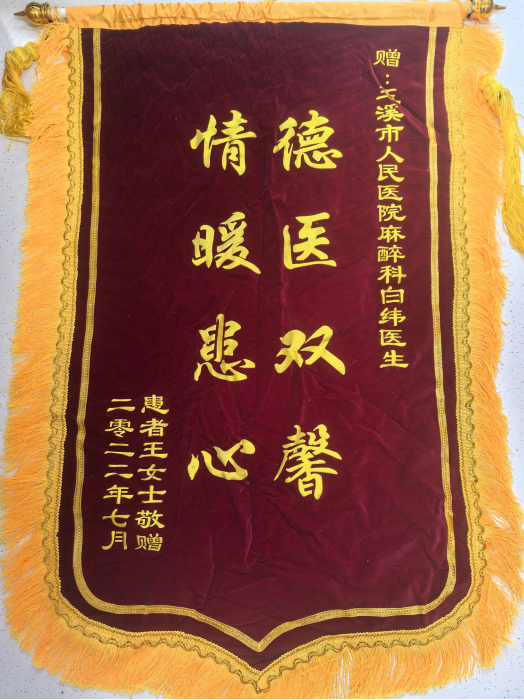 赠：玉溪市人民医院麻醉科白纬医生
德医双馨
情暖患心
患者王女士敬赠
二零二二年七月